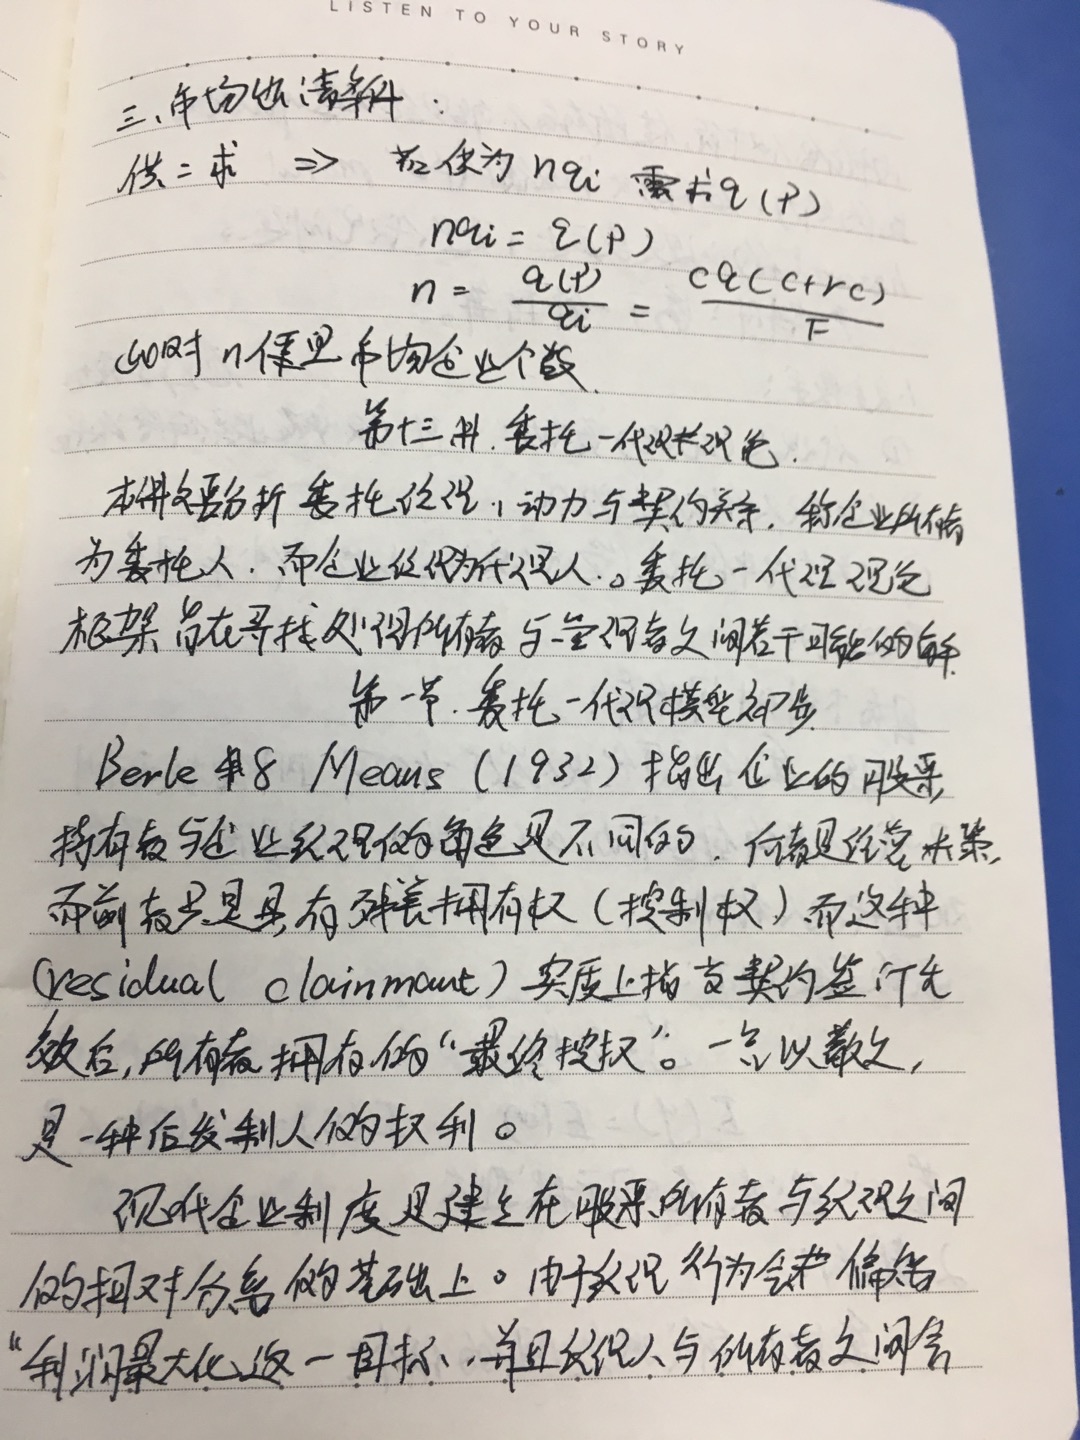 LISTEN TO YOUR STORY
三、市场出清条件:
供=求 => 若供为 nqi 需求 q(P)
nqi = q(P)
n = q(P)/qi = cq(c+rc)/F
此时 n 便是市场企业个数.
第十三讲. 委托一代理理论.
本讲主要分析委托经理, 动力与契约关系. 称企业所有者
为委托人. 而企业经理为代理人. 。委托一代理理论
框架旨在寻找处理所有者与管理者之间若干可能的解.
第一节. 委托一代理模型初步
Berle & Means (1932) 指出企业的股票
持有者与企业经理的角色是不同的. 后者是经营决策,
而前者只是具有残差拥有权(控制权)而这种
(residual clainmant) 实质上指在契约签订无
效后, 所有者拥有的“最终控权”。一言以蔽之,
是一种后发制人的权利。
现代企业制度是建立在股票所有者与经理之间
的相对分离的基础上。由于经理行为会偏离
“利润最大化这一目标, 并且经理人与所有者之间会